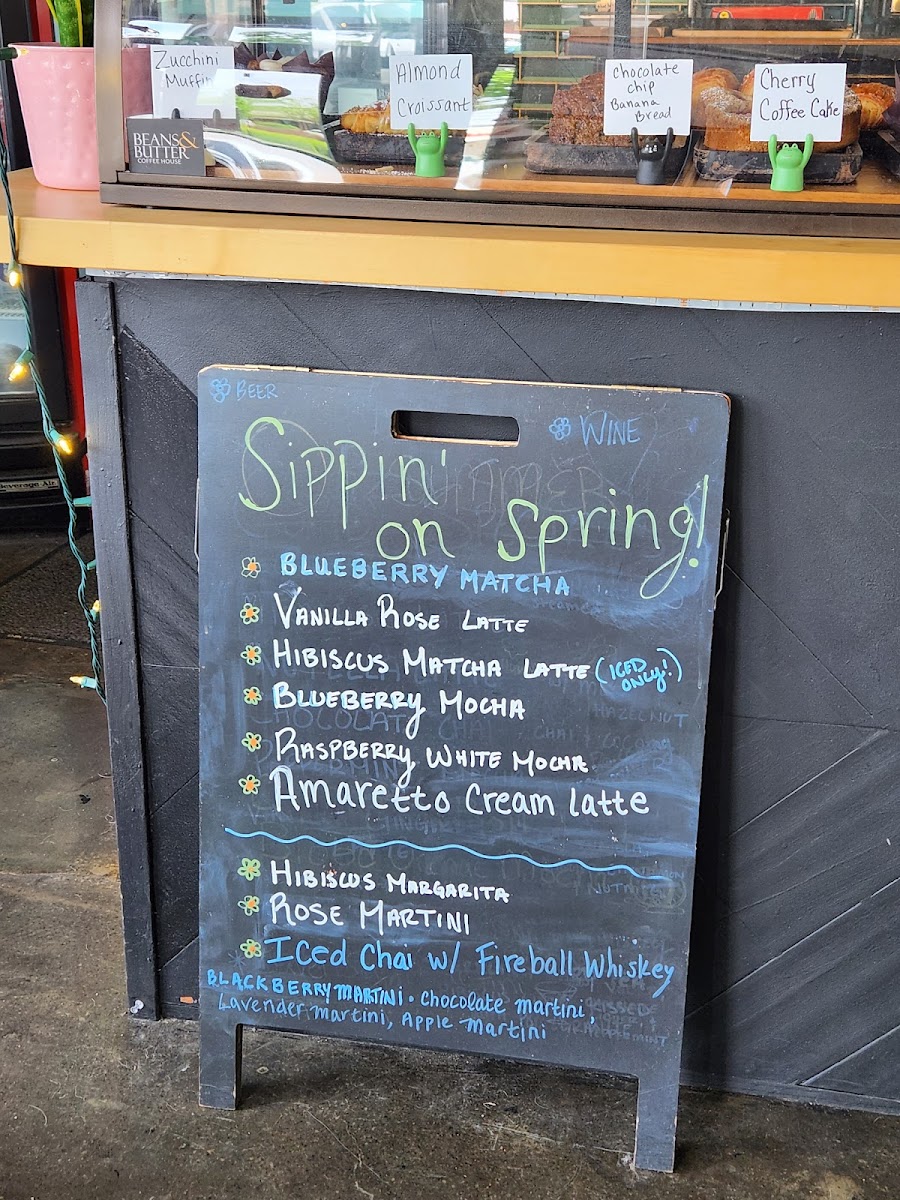 Zucchini
Muffin
Almond
Croissant
chocolate
chip
Banana
Bread
Cherry
Coffee Cake
BEANS&
BUTTER
COFFEE HOUSE
Beverage Air
BEER
WINE
Sippin'
on Spring!
BLUEBERRY MATCHA
VANILLA ROSE LATTE
HIBISCUS MATCHA LATTE (ICED
ONLY!)
BLUEBERRY MOCHA
RASPBERRY WHITE MOCHA
Amaretto Cream latte
HIBISCUS MARGARITA
ROSE MARTINI
Iced Chai w/ Fireball Whiskey
BLACKBERRY MARTINI • chocolate martini,
Lavender martini, Apple martini
HAZELNUT
CHOCOLATE CHAI